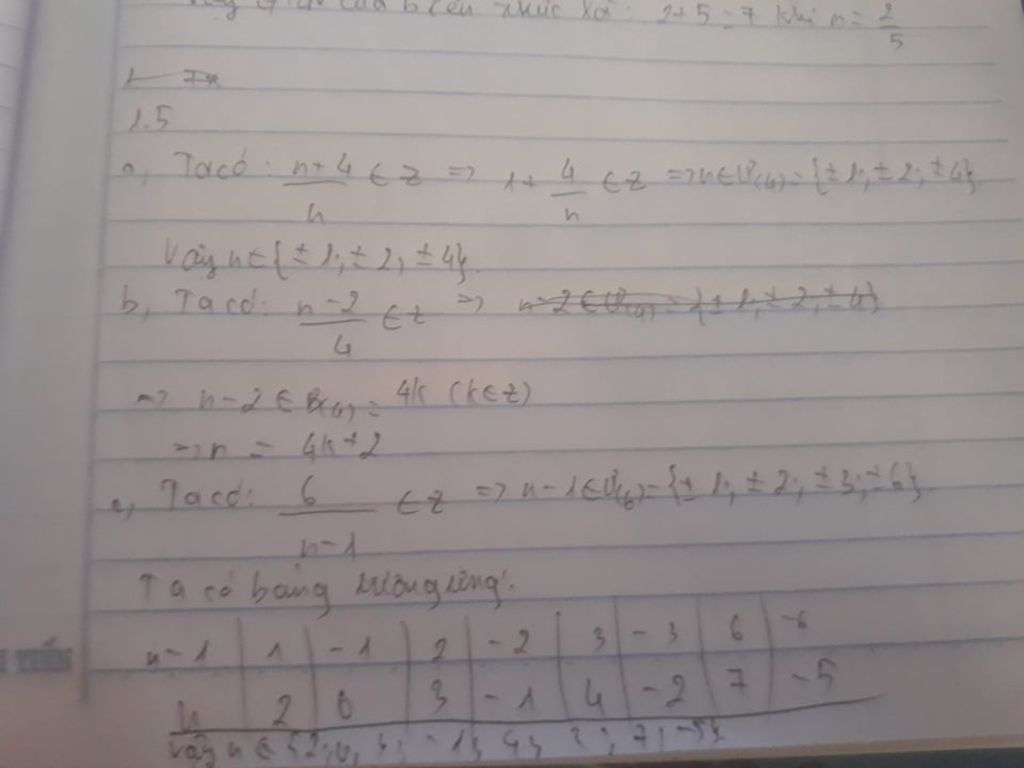 của biểu thức là: 2+5=7 khi n = 2/5
1.5
a, Ta có: n+4/n ∈ Z => 1+ 4/n ∈ Z => n ∈ Ư(4) = {±1; ±2; ±4}
Vậy n ∈ {±1; ±2; ±4}.
b, Ta có: n-2/4 ∈ Z => n-2 ∈ Ư(4) = {±1; ±2; ±4}
=> n-2 ∈ B(4) = 4k (k ∈ Z)
=> n = 4k+2
c, Ta có: 6/n-1 ∈ Z => n-1 ∈ Ư(6) = {±1; ±2; ±3; ±6}
Ta có bảng tương ứng:
n-1 1 -1 2 -2 3 -3 6 -6
n 2 0 3 -1 4 -2 7 -5
Vậy n ∈ {2; 0; 3; -1; 4; 2; 7; -5}